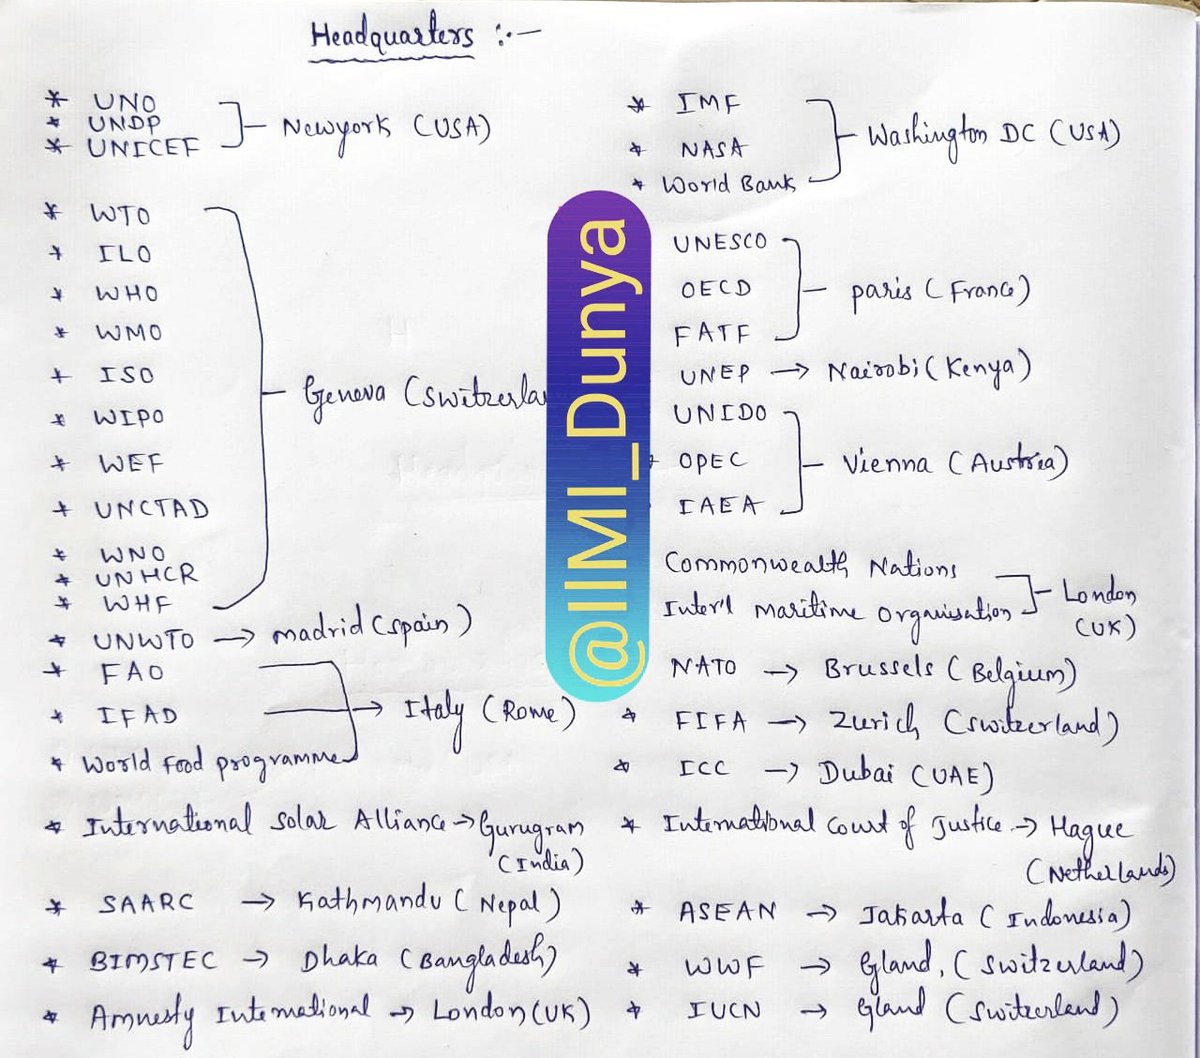 Headquarters :-
* UNO
* UNDP
* UNICEF
Newyork (USA)
* WTO
* ILO
* WHO
* WMO
* ISO
* WIPO
* WEF
* UNCTAD
* WNO
* UNHCR
* WHF
Geneva (Switzerla
* UNWTO → madrid (spain)
* FAO
* IFAD
* World Food programme
→ Italy (Rome)
* International Solar Alliance → Gurugram
(India)
* SAARC → Kathmandu (Nepal)
* BIMSTEC → Dhaka (Bangladesh)
* Amnesty International → London (UK)
@IlMI_Dunya
* IMF
* NASA
* World Bank
Washington DC (USA)
UNESCO
OECD
FATF
paris (France)
UNEP → Nairobi (Kenya)
UNIDO
OPEC
IAEA
Vienna (Austria)
Commonwealth Nations
Inter'l Maritime Organisation
London
(UK)
NATO → Brussels (Belgium)
* FIFA → Zurich (Switzerland)
* ICC → Dubai (UAE)
* International Court of Justice → Hague
(Netherlands)
* ASEAN → Jakarta (Indonesia)
* WWF → Gland, (Switzerland)
* IUCN → Gland (Switzerland)